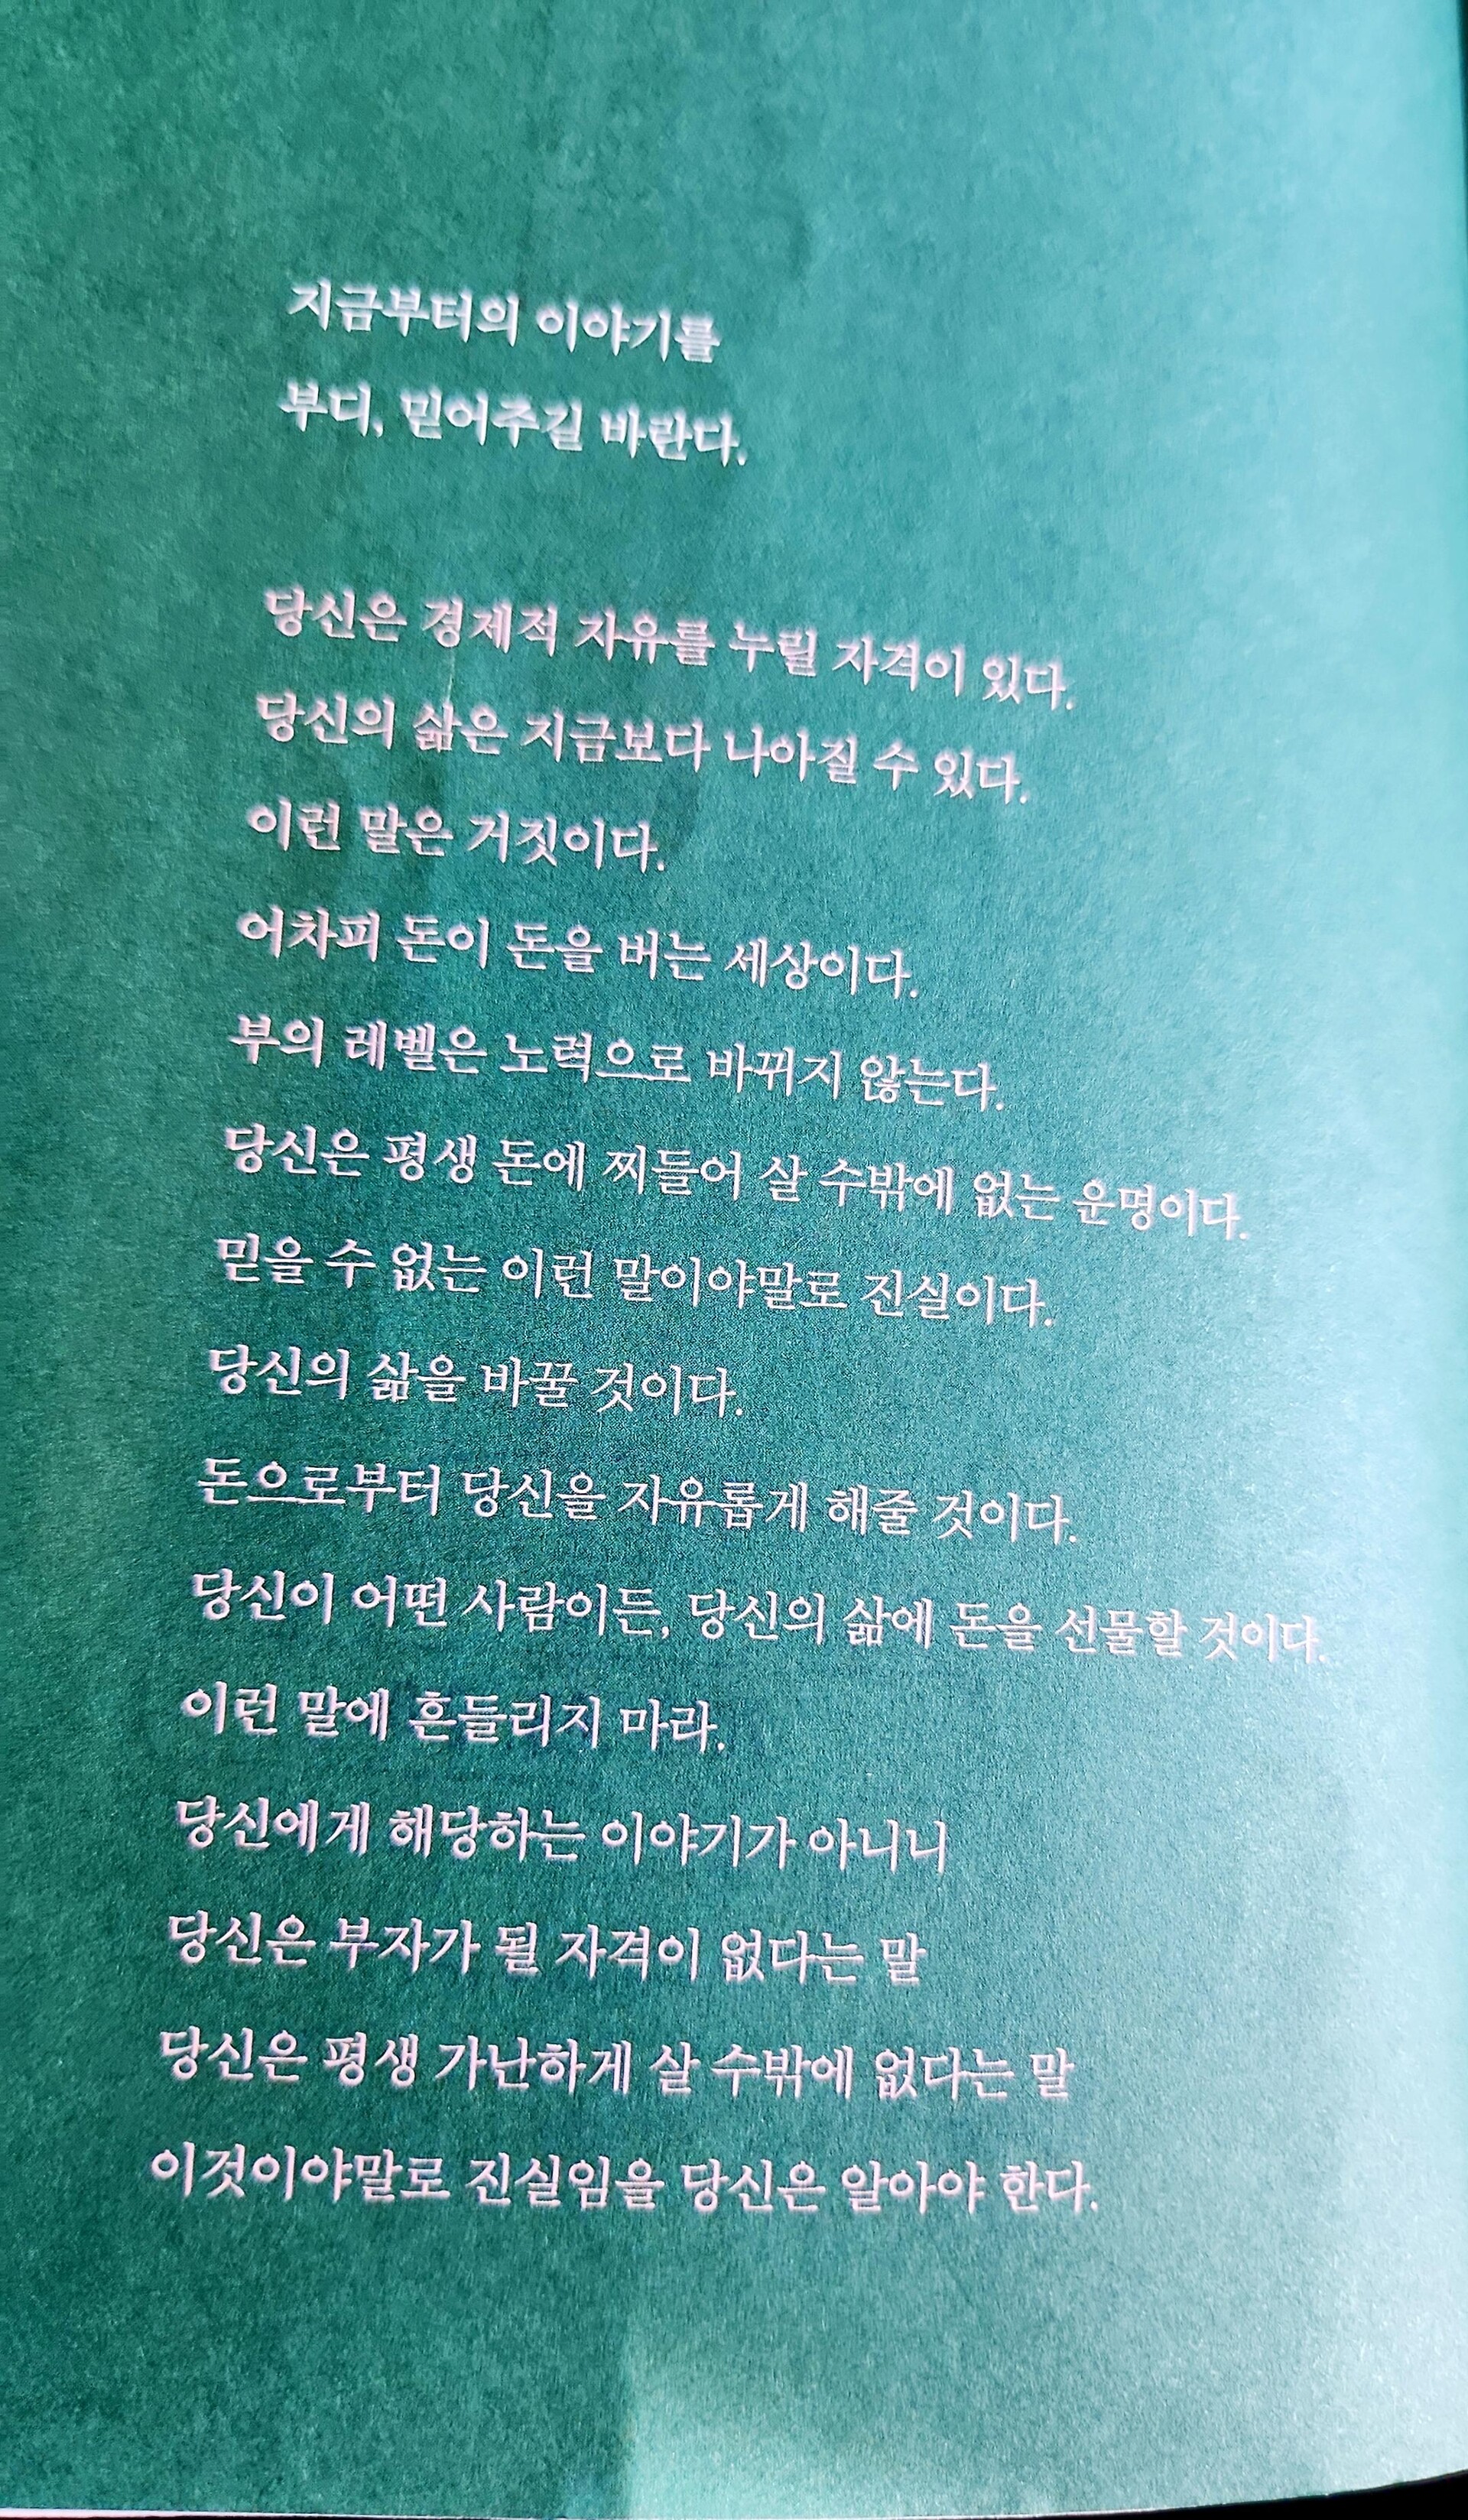 지금부터의 이야기를
부디, 믿어주길 바란다.
당신은 경제적 자유를 누릴 자격이 있다.
당신의 삶은 지금보다 나아질 수 있다.
이런 말은 거짓이다.
어차피 돈이 돈을 버는 세상이다.
부의 레벨은 노력으로 바뀌지 않는다.
당신은 평생 돈에 찌들어 살 수밖에 없는 운명이다.
믿을 수 없는 이런 말이야말로 진실이다.
당신의 삶을 바꿀 것이다.
돈으로부터 당신을 자유롭게 해줄 것이다.
당신이 어떤 사람이든, 당신의 삶에 돈을 선물할 것이다.
이런 말에 흔들리지 마라.
당신에게 해당하는 이야기가 아니니
당신은 부자가 될 자격이 없다는 말
당신은 평생 가난하게 살 수밖에 없다는 말
이것이야말로 진실임을 당신은 알아야 한다.